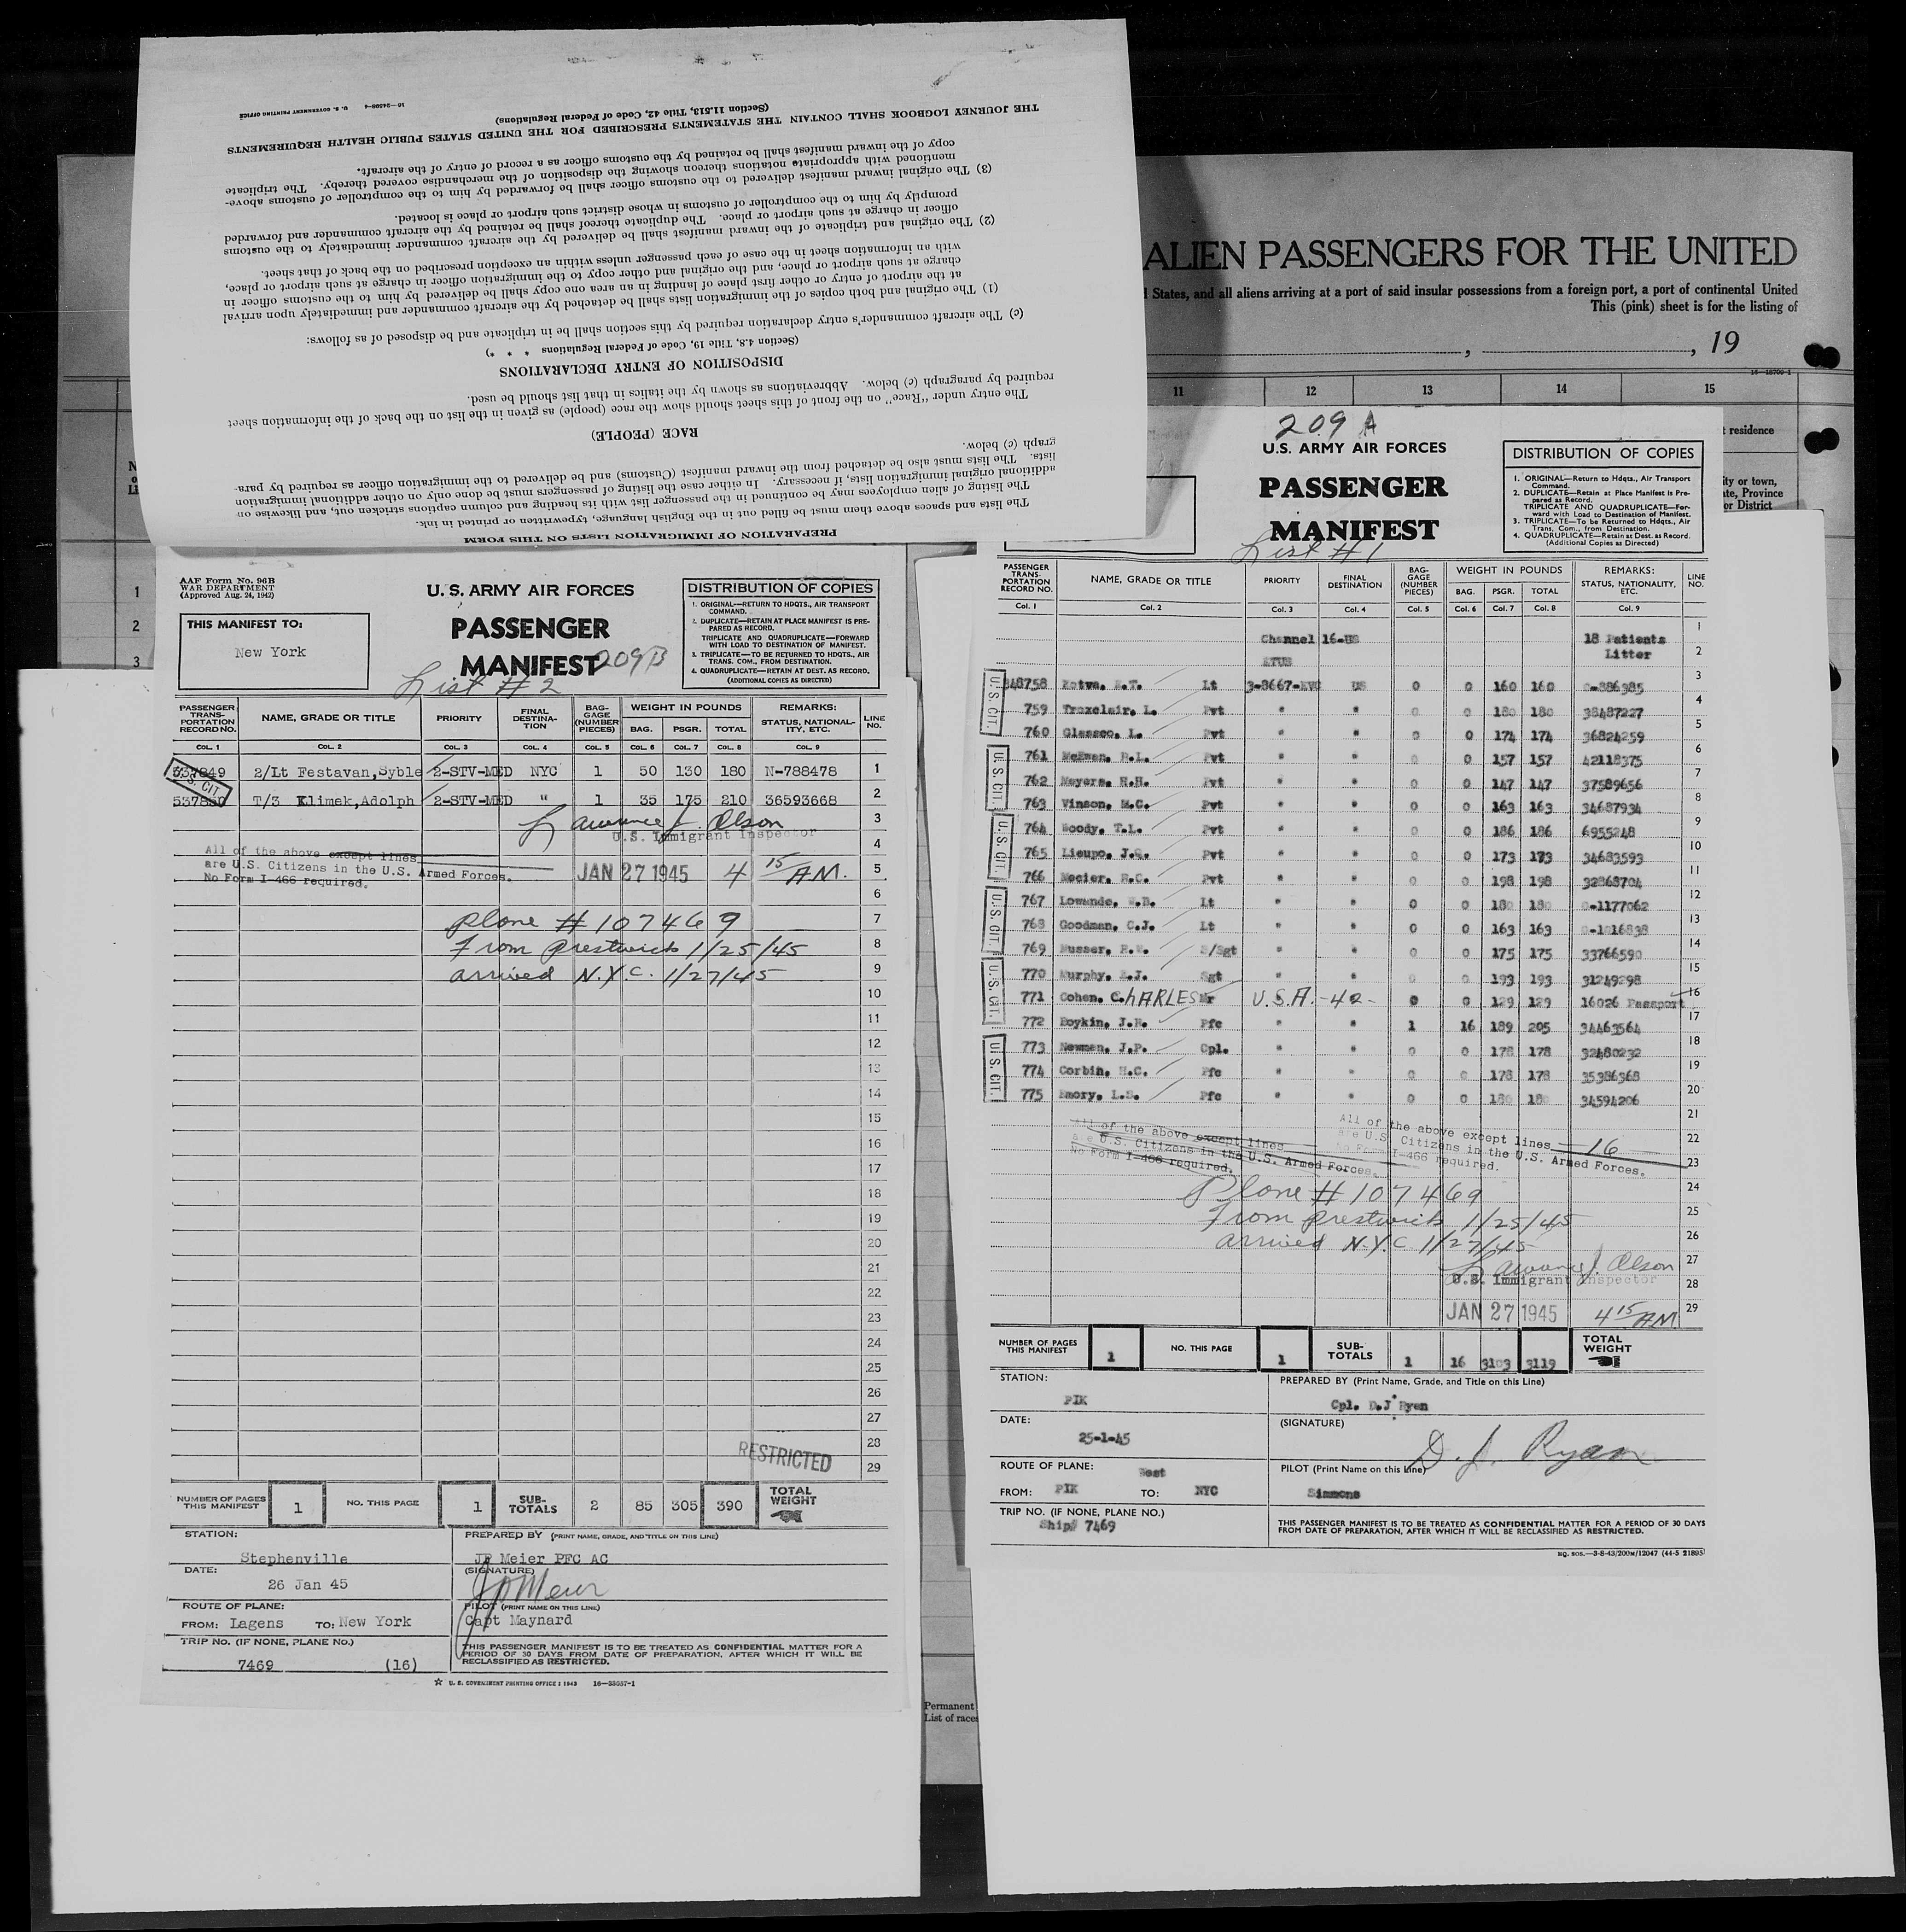 PREPARATION OF IMMIGRATION LISTS ON THIS FORM
The lists and spaces above them must be filled out in the English language, typewritten or printed in ink.
The listing of alien employees may be continued in the passenger list with its heading and column captions stricken out, and likewise on
additional original immigration lists, if necessary. In either case the listing of passengers must be done only on other additional immigration
lists. The lists must also be detached from the inward manifest (Customs) and be delivered to the immigration officer as required by para-
graph (c) below.
RACE (PEOPLE)
The entry under "Race" on the front of this sheet should show the race (people) as given in the list on the back of the information sheet
required by paragraph (c) below. Abbreviations as shown by the italics in that list should be used.
DISPOSITION OF ENTRY DECLARATIONS
(Section 4.8, Title 19, Code of Federal Regulations * * *)
(c) The aircraft commander's entry declaration required by this section shall be in triplicate and be disposed of as follows:
(1) The original and both copies of the immigration lists shall be detached by the aircraft commander and immediately upon arrival
at the airport of entry or other first place of landing in an area one copy shall be delivered by him to the customs officer in
charge at such airport or place, and the original and other copy to the immigration officer in charge at such airport or place,
with an information sheet in the case of each passenger unless within an exception prescribed on the back of that sheet.
(2) The original and triplicate of the inward manifest shall be delivered by the aircraft commander immediately to the customs
officer in charge at such airport or place. The duplicate thereof shall be retained by the aircraft commander and forwarded
promptly by him to the comptroller of customs in whose district such airport or place is located.
(3) The original inward manifest delivered to the customs officer shall be forwarded by him to the comptroller of customs above-
mentioned with appropriate notations thereon showing the disposition of the merchandise covered thereby. The triplicate
copy of the inward manifest shall be retained by the customs officer as a record of entry of the aircraft.
THE JOURNEY LOGBOOK SHALL CONTAIN THE STATEMENTS PRESCRIBED FOR THE UNITED STATES PUBLIC HEALTH REQUIREMENTS
(Section 11.513, Title 42, Code of Federal Regulations)
16—24598-4 U. S. GOVERNMENT PRINTING OFFICE
ALIEN PASSENGERS FOR THE UNITED
States, and all aliens arriving at a port of said insular possessions from a foreign port, a port of continental United
This (pink) sheet is for the listing of
, , 19
11 12 13 14 15
residence
ity or town,
te, Province
or District
1
2
3
Permanent
List of races
AAF Form No. 96B
WAR DEPARTMENT
(Approved Aug. 24, 1942)
THIS MANIFEST TO:
New York
U. S. ARMY AIR FORCES
PASSENGER
MANIFEST 209B
List # 2
DISTRIBUTION OF COPIES
1. ORIGINAL—RETURN TO HDQTS., AIR TRANSPORT
COMMAND.
2. DUPLICATE—RETAIN AT PLACE MANIFEST IS PRE-
PARED AS RECORD.
TRIPLICATE AND QUADRUPLICATE—FORWARD
WITH LOAD TO DESTINATION OF MANIFEST.
3. TRIPLICATE—TO BE RETURNED TO HDQTS., AIR
TRANS. COM., FROM DESTINATION.
4. QUADRUPLICATE—RETAIN AT DEST. AS RECORD.
(ADDITIONAL COPIES AS DIRECTED)
PASSENGER TRANS- PORTATION RECORD NO. NAME, GRADE OR TITLE PRIORITY FINAL DESTINA- TION BAG- GAGE (NUMBER PIECES) WEIGHT IN POUNDS BAG. PSGR. TOTAL REMARKS: STATUS, NATIONAL- ITY, ETC. LINE NO.
COL. 1 COL. 2 COL. 3 COL. 4 COL. 5 COL. 6 COL. 7 COL. 8 COL. 9
537849 2/Lt Festavan,Syble 2-STV-MED NYC 1 50 130 180 N-788478 1
U.S. CIT.
T/3 Klimek,Adolph 2-STV-MED " 1 35 175 210 36593668 2
Lawrence J. Olson 3
U.S. Immigrant Inspector
All of the above except lines 4
are U.S. Citizens in the U.S. Armed Forces.
No Form I-466 required.
JAN 27 1945 4 15 AM. 5
6
plane # 107469 7
From Prestwick 1/25/45 8
arrived N.Y.C. 1/27/45 9
10
11
12
13
14
15
16
17
18
19
20
21
22
23
24
25
26
27
28
RESTRICTED
29
NUMBER OF PAGES THIS MANIFEST 1 NO. THIS PAGE 1 SUB- TOTALS 2 85 305 390 TOTAL WEIGHT
STATION:
Stephenville
PREPARED BY (PRINT NAME, GRADE, AND TITLE ON THIS LINE)
JP Meier PFC AC
DATE:
26 Jan 45
(SIGNATURE)
JP Meier
ROUTE OF PLANE:
FROM: Lagens TO: New York
PILOT (PRINT NAME ON THIS LINE)
Capt Maynard
TRIP NO. (IF NONE, PLANE NO.)
7469 (16)
THIS PASSENGER MANIFEST IS TO BE TREATED AS CONFIDENTIAL MATTER FOR A
PERIOD OF 30 DAYS FROM DATE OF PREPARATION, AFTER WHICH IT WILL BE
RECLASSIFIED AS RESTRICTED.
U. S. GOVERNMENT PRINTING OFFICE : 1943 16—33557-1
209 A
U.S. ARMY AIR FORCES
PASSENGER
MANIFEST
List # 1
DISTRIBUTION OF COPIES
1. ORIGINAL—Return to Hdqts., Air Transport
Command.
2. DUPLICATE—Retain at Place Manifest Is Pre-
pared as Record.
TRIPLICATE AND QUADRUPLICATE—For-
ward with Load to Destination of Manifest.
3. TRIPLICATE—To be Returned to Hdqts., Air
Trans. Com., from Destination.
4. QUADRUPLICATE—Retain at Dest. as Record.
(Additional Copies as Directed)
PASSENGER TRANS- PORTATION RECORD NO. NAME, GRADE OR TITLE PRIORITY FINAL DESTINATION BAG- GAGE (NUMBER PIECES) WEIGHT IN POUNDS BAG. PSGR. TOTAL REMARKS: STATUS, NATIONALITY, ETC. LINE NO.
Col. 1 Col. 2 Col. 3 Col. 4 Col. 5 Col. 6 Col. 7 Col. 8 Col. 9
1
Channel 16-US 18 Patients
ETUS Litter 2
348758 Lt US 0 0 160 160 O-886385 3
759 Troxclair, L. Pvt " " 0 0 180 180 38487227 4
760 Glassco, L. Pvt " " 0 0 174 174 36824259 5
761 McEwan, R.L. Pvt " " 0 0 157 157 42118375 6
762 Meyers, H.H. Pvt " " 0 0 147 147 37589656 7
763 Vinson, M.C. Pvt " " 0 0 163 163 34687934 8
764 Woody, T.L. Pvt " " 0 0 186 186 6955248 9
765 Lieupo, J.Q. Pvt " " 0 0 173 173 34683593 10
766 Mecier, R.C. Pvt " " 0 0 198 198 32868704 11
767 Lowande, W.B. Lt " " 0 0 180 180 O-1177062 12
768 Goodman, C.J. Lt " " 0 0 163 163 13
769 Musser, R.W. S/Sgt " " 0 0 175 175 33766590 14
770 Murphy, E.J. Sgt " " 0 0 193 193 31249298 15
771 Cohen, C.hARLES Mr U.S.A. -40- 0 0 129 129 16026 Passport 16
772 Boykin, J.H. Pfc " " 1 16 189 205 34463564 17
773 Newman, J.P. Cpl. " " 0 0 178 178 32480232 18
774 Corbin, H.C. Pfc " " 0 0 178 178 35386368 19
775 Emory, L.S. Pfc " " 0 0 180 180 34594206 20
U.S. CIT.
U.S. CIT.
U.S. CIT.
U.S. CIT.
U.S. CIT.
U.S. CIT.
21
All of the above except lines
are U.S. Citizens in the U.S. Armed Forces.
No Form I-466 required.
All of the above except lines 16
are U.S. Citizens in the U.S. Armed Forces.
No Form I-466 required.
22
23
Plane # 107469 24
From Prestwick 1/25/45 25
arrived N.Y.C 1/27/45 26
Lawrence J. Olson 27
U.S. Immigrant Inspector 28
JAN 27 1945 4 15 AM 29
NUMBER OF PAGES THIS MANIFEST 1 NO. THIS PAGE 1 SUB- TOTALS 1 16 3103 3119 TOTAL WEIGHT
STATION:
PIK
PREPARED BY (Print Name, Grade, and Title on this Line)
Cpl. D.J Ryan
DATE:
25-1-45
(SIGNATURE)
D. J. Ryan
ROUTE OF PLANE: West
FROM: PIK TO: NYC
PILOT (Print Name on this Line)
Simmons
TRIP NO. (IF NONE, PLANE NO.)
Ship# 7469
THIS PASSENGER MANIFEST IS TO BE TREATED AS CONFIDENTIAL MATTER FOR A PERIOD OF 30 DAYS
FROM DATE OF PREPARATION, AFTER WHICH IT WILL BE RECLASSIFIED AS RESTRICTED.
HQ. SOS.—3-8-43/200M/12047 (44-5 21895)